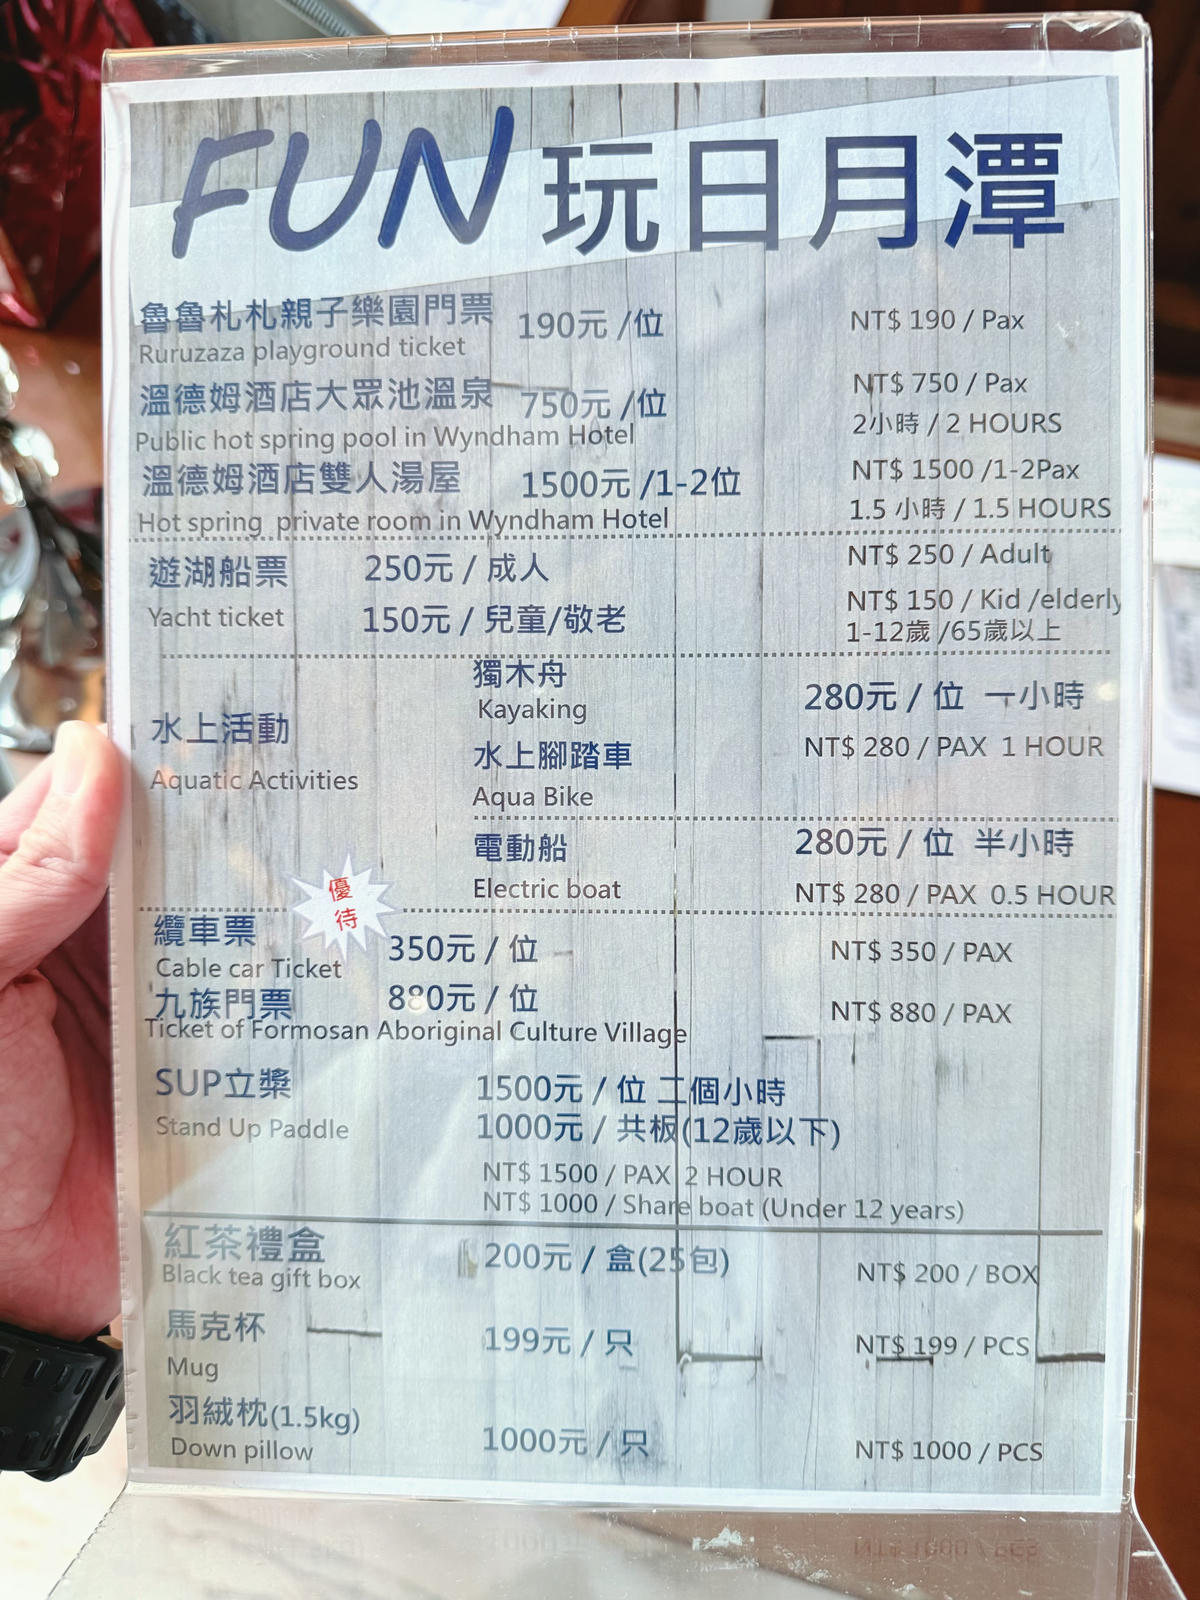 FUN 玩日月潭
魯魯札札親子樂園門票 190元 /位 NT$ 190 / Pax
Ruruzaza playground ticket
溫德姆酒店大眾池溫泉 750元 /位 NT$ 750 / Pax
Public hot spring pool in Wyndham Hotel 2小時 / 2 HOURS
溫德姆酒店雙人湯屋 1500元 /1-2位 NT$ 1500 /1-2Pax
Hot spring private room in Wyndham Hotel 1.5 小時 / 1.5 HOURS
遊湖船票 250元 / 成人 NT$ 250 / Adult
Yacht ticket 150元 / 兒童/敬老 NT$ 150 / Kid /elderly
1-12歲 /65歲以上
獨木舟
Kayaking 280元 / 位 一小時
水上活動
水上腳踏車 NT$ 280 / PAX 1 HOUR
Aquatic Activities
Aqua Bike
電動船 280元 / 位 半小時
Electric boat NT$ 280 / PAX 0.5 HOUR
優
待
纜車票 350元 / 位 NT$ 350 / PAX
Cable car Ticket
九族門票 880元 / 位 NT$ 880 / PAX
Ticket of Formosan Aboriginal Culture Village
SUP立槳 1500元 / 位 二個小時
Stand Up Paddle 1000元 / 共板(12歲以下)
NT$ 1500 / PAX 2 HOUR
NT$ 1000 / Share boat (Under 12 years)
紅茶禮盒 200元 / 盒(25包) NT$ 200 / BOX
Black tea gift box
馬克杯 199元 / 只 NT$ 199 / PCS
Mug
羽絨枕(1.5kg) 1000元 / 只 NT$ 1000 / PCS
Down pillow